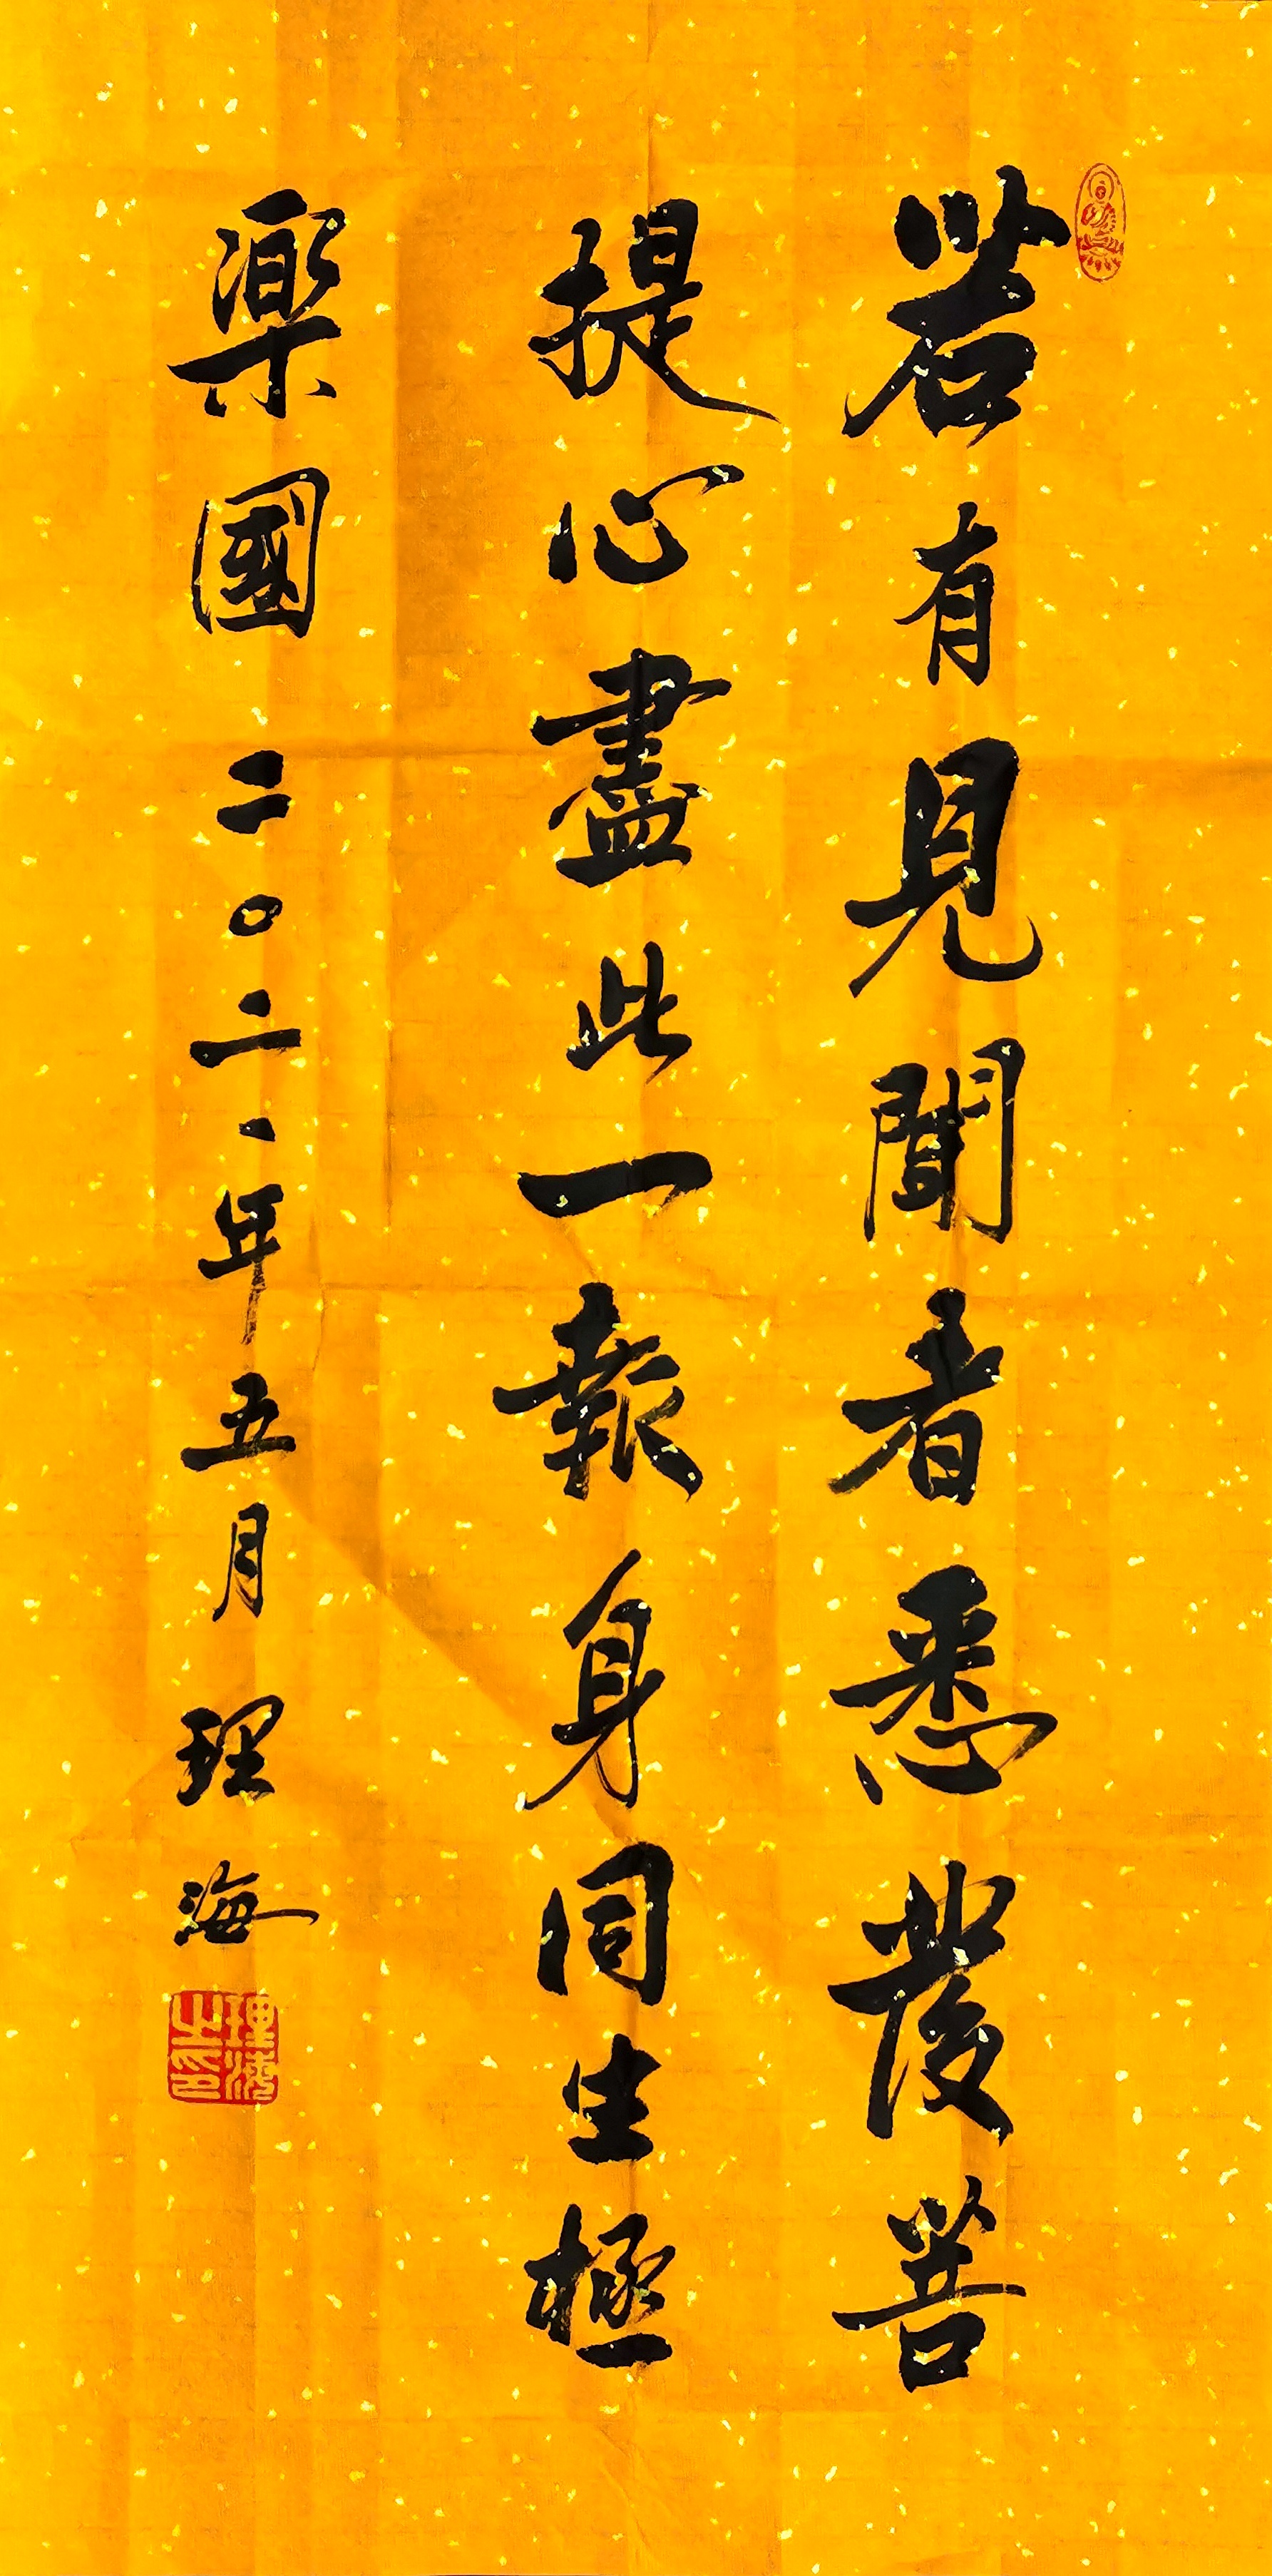 若有見聞者悉發菩
提心盡此一報身同生極
樂國 二〇二一年五月 理海
理海之印